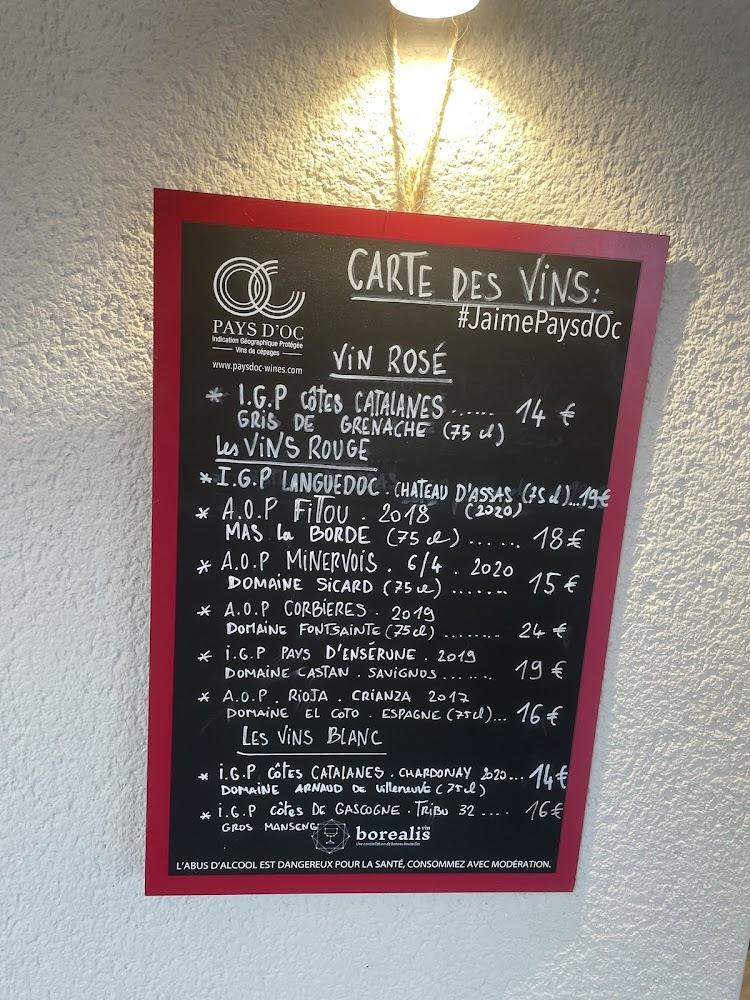 CARTE DES VINS:
#JaimePaysdOc
PAYS D'OC
Indication Géographique Protégée
Vins de cépages
www.paysdoc-wines.com
VIN ROSÉ
* I.G.P CÔTES CATALANES ...... 14 €
GRIS DE GRENACHE (75 cl)
Les VINS ROUGE
* I.G.P LANGUEDOC . CHATEAU D'ASSAS (75 cl)...19€
(2020)
* A.O.P FITOU 2018
MAS la BORDE (75 cl) ...... 18€
* A.O.P MINERVOIS . 6/4 . 2020
DOMAINE SICARD (75 cl) ....... 15 €
* A.O.P CORBIERES . 2019
DOMAINE FONTSAINTE (75 cl) ........ 24 €
* I.G.P PAYS D'ENSÉRUNE . 2019
DOMAINE CASTAN . SAVIGNUS ....... 19 €
* A.O.P. RIOJA . CRIANZA 2017
DOMAINE EL COTO . ESPAGNE (75 cl)... 16 €
LES VINS BLANC
* I.G.P CÔTES CATALANES . CHARDONAY 2020... 14€
DOMAINE ARNAUD DE Villeneuve (75 cl)
* I.G.P CÔTES DE GASCOGNE . TRIBU 32 .... 16€
GROS MANSENG
borealis vin
Une constellation de bonnes bouteilles
L'ABUS D'ALCOOL EST DANGEREUX POUR LA SANTÉ, CONSOMMEZ AVEC MODÉRATION.